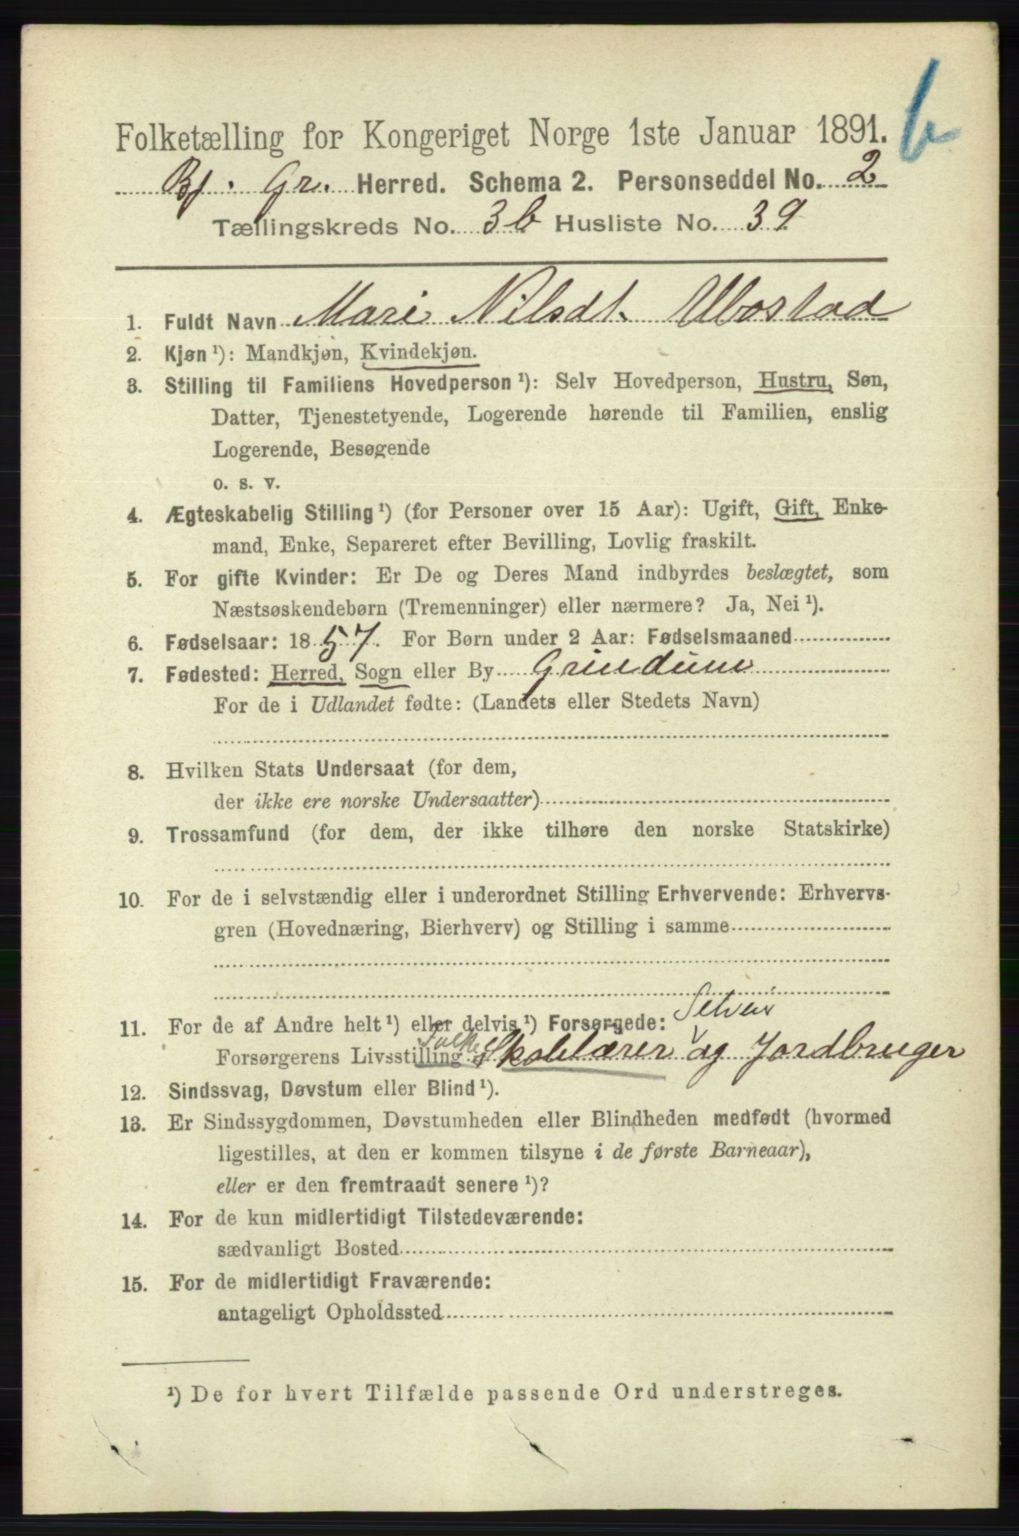 6
Folketælling for Kongeriget Norge 1ste Januar 1891.
Bj. Gr. Herred. Schema 2. Personseddel No. 2
Tællingskreds No. 3b Husliste No. 39
1. Fuldt Navn Mari Nilsdt. Ubostad
2. Kjøn ¹): Mandkjøn, Kvindekjøn.
3. Stilling til Familiens Hovedperson ¹): Selv Hovedperson, Hustru, Søn,
Datter, Tjenestetyende, Logerende hørende til Familien, enslig
Logerende, Besøgende
o. s. v.
4. Ægteskabelig Stilling ¹) (for Personer over 15 Aar): Ugift, Gift, Enke-
mand, Enke, Separeret efter Bevilling, Lovlig fraskilt.
5. For gifte Kvinder: Er De og Deres Mand indbyrdes beslægtet, som
Næstsøskendebørn (Tremenninger) eller nærmere? Ja, Nei ¹).
6. Fødselsaar: 1857. For Børn under 2 Aar: Fødselsmaaned
7. Fødested: Herred, Sogn eller By Grindum
For de i Udlandet fødte: (Landets eller Stedets Navn)
8. Hvilken Stats Undersaat (for dem,
der ikke ere norske Undersaatter)
9. Trossamfund (for dem, der ikke tilhøre den norske Statskirke)
10. For de i selvstændig eller i underordnet Stilling Erhvervende: Erhvervs-
gren (Hovednæring, Bierhverv) og Stilling i samme
11. For de af Andre helt ¹) eller delvis ¹) Forsørgede: Selveir
Forsørgerens Livsstilling Folke Skolelærer og Jordbruger
12. Sindssvag, Døvstum eller Blind ¹).
13. Er Sindssygdommen, Døvstumheden eller Blindheden medfødt (hvormed
ligestilles, at den er kommen tilsyne i de første Barneaar),
eller er den fremtraadt senere ¹)?
14. For de kun midlertidigt Tilstedeværende:
sædvanligt Bosted
15. For de midlertidigt Fraværende:
antageligt Opholdssted
¹) De for hvert Tilfælde passende Ord understreges.